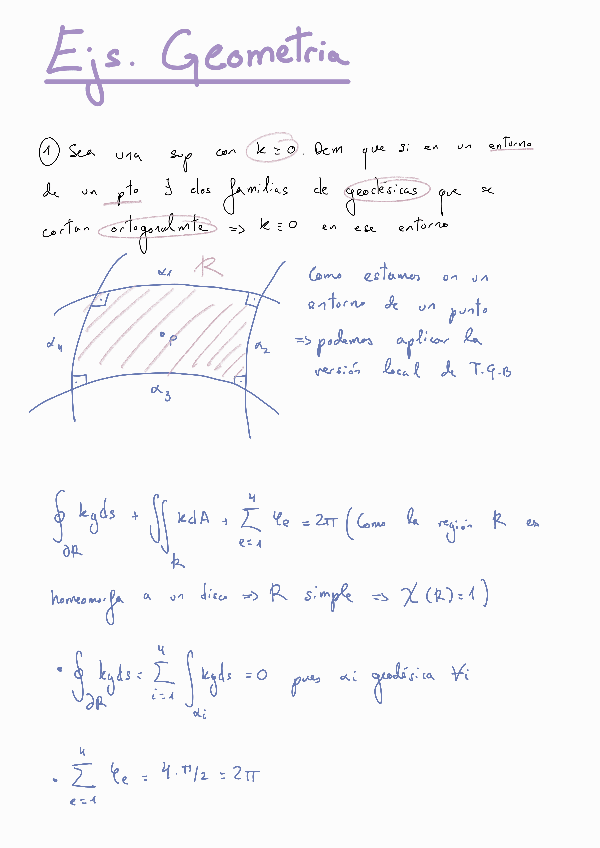 Ejs. Geometria
① Sea una sup con k ≥ 0. Dem que si en un entorno
de un pto ∃ dos familias de geodésicas que se
cortan ortogonalmte ⇒ k ≡ 0 en ese entorno
α1 R
Como estamos en un
entorno de un punto
⇒ podemos aplicar la
versión local de T.G.B
α4
p
α2
α3
∮∂R kg ds + ∬R k dA + ∑e=1^4 φe = 2π (Como la región R es
homeomorfa a un disco ⇒ R simple ⇒ χ(R)=1)
• ∮∂R kg ds = ∑i=1^4 ∫αi kg ds = 0 pues αi geodésica ∀i
• ∑e=1^4 φe = 4·π/2 = 2π